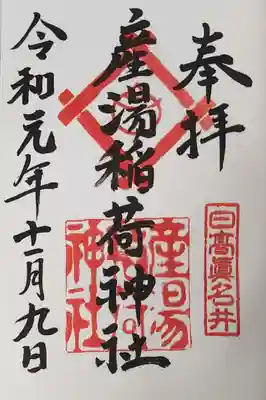 奉拝
日高眞名井
産湯稲荷神社
産湯
神社
令和元年十一月九日